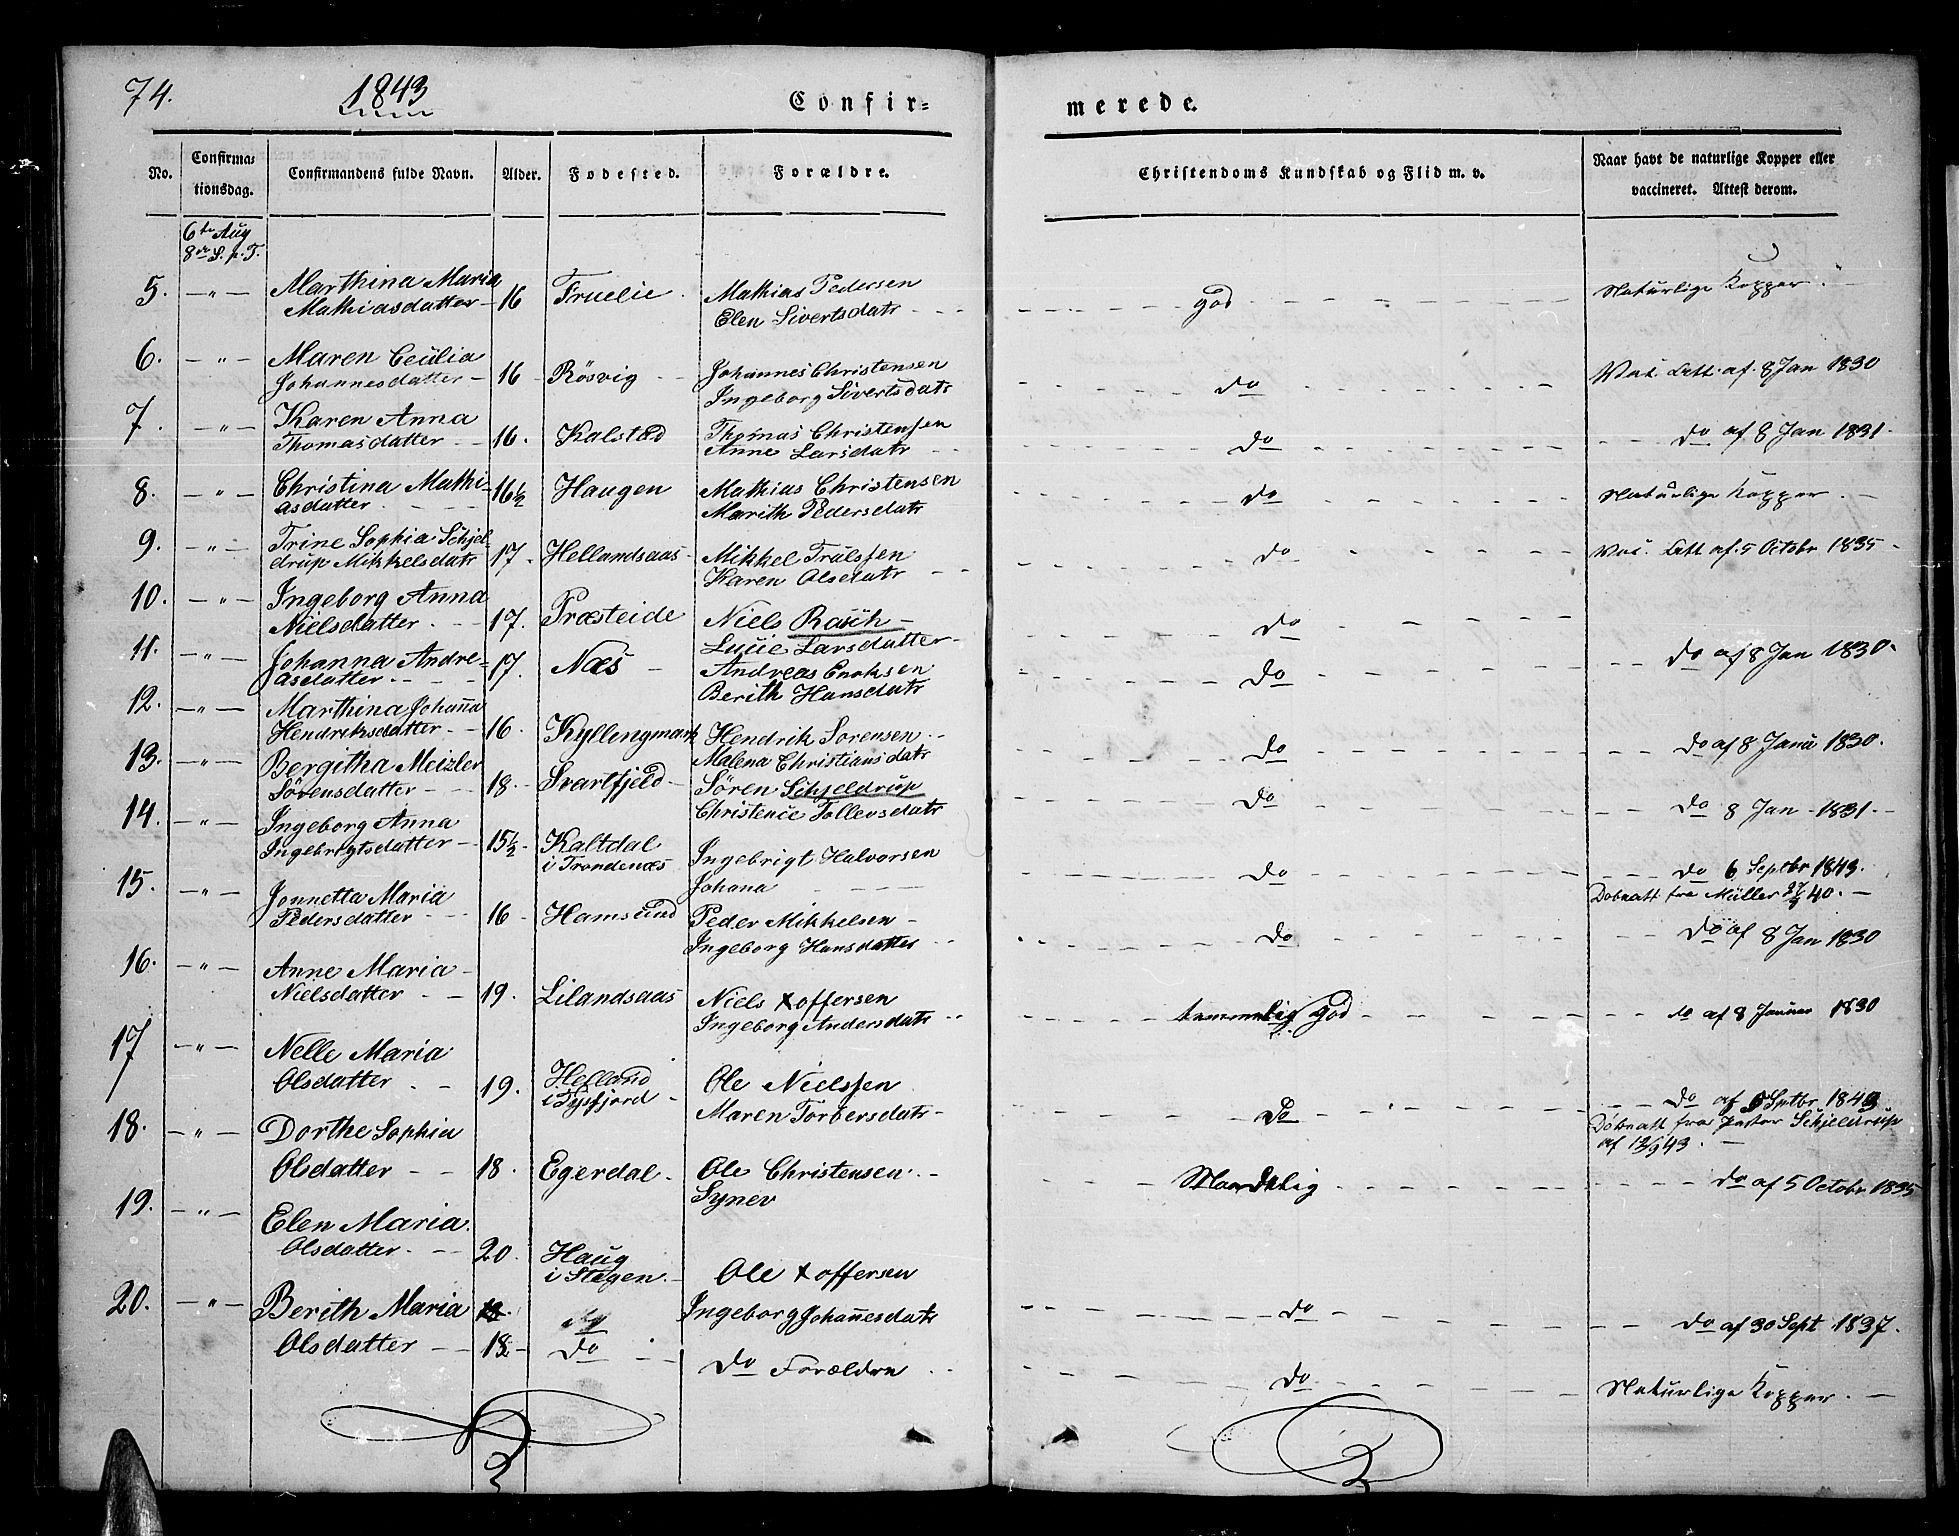 74. 1843 Confir= merede.
No. Confirma= tionsdag. Confirmandens fulde Navn. Alder. Fodested. Forældre. Christendoms Kundskab og Flid m. v. Naar havt de naturlige Kopper eller vaccineret. Attest derom.
6te Aug
8de S. p. T.
5. — " — Marthina Maria 16 Fruelie. Mathias Pedersen god Naturlige Kopper.
Mathiasdatter Elen Sivertsdatr
6. — " — Maren Cecilia 16 Rösvig Johannes Christensen do Vac. Att. af 8 Jan 1830
Johannesdatter Ingeborg Sivertsdatr
7. — " — Karen Anna 16. Kalstad Thomas Christensen do do af 8 Jan 1831.
Thomasdatter Anne Larsdatr
8. — " — Christina Mathi- 16½ Haugen Mathias Christensen do Naturlige Kopper.
asdatter. Marith Pedersdatr
9. — " — Trine Sophia Schjel- 17. Hellandsaas Mikkel Trulssen do Vac. Att af 5 Octobr 1835
drup Mikkelsdatr Karen Olsdatr
10. — " — Ingeborg Anna 17. Præsteide Niels Rasch do
Nielsdatter. Lucie Larsdatter
11. — " — Johanna Andre- 17. Næs Andreas Enoksen do do af 8 Jan 1830.
asdatter. Berith Hansdatr
12. — " — Marthina Johanna 16. Kyllingmark Hendrik Sorensen do do af 8 Janu 1830.
Hendriksdatter. Malena Christiansdatr
13. — " — Bergitha Meizler 18. Svartfjeld Sören Schjeldrup do do 8 Jan 1831.
Sörensdatter Christence Tollevsdatr
14. — " — Ingeborg Anna 15½ Kaltdal Ingebrigt Halvorsen do do 6 Septbr 1843.
Ingebrigtsdatter i Trondenæs Johana Dobsatt fra Müller 27/9 40.
15. — " — Jonnetta Maria 16 Hamsund Peder Mikkelsen do do af 8 Jan 1830
Pedersdatter Ingeborg Hansdatter
16. — " — Anne Maria 19. Lilandsaas Niels xoffersen temmelig god do af 8 Januar 1830
Nielsdatter Ingeborg Andersdatr
17 — " — Nelle Maria 19. Helland Ole Nielssen do do af Septbr 1843
Olsdatter i Tysfjord Maren Torbersdatr Döbsatt fra Pastor Schjeldrup
af 12/9 43.
18. — " — Dorthe Sophia
Olsdatter 18. Egerdal Ole Christensen Maadelig do af 5 Octobr 1835
Synev
19. — " — Elen Maria
Olsdatter 20. Haug Ole xoffersen do do af 30 Sept 1837.
i Stegen Ingeborg Johannesdatr
20. — " — Berith Maria
Olsdatter 18. do do Forældre do Naturlige Kopper.